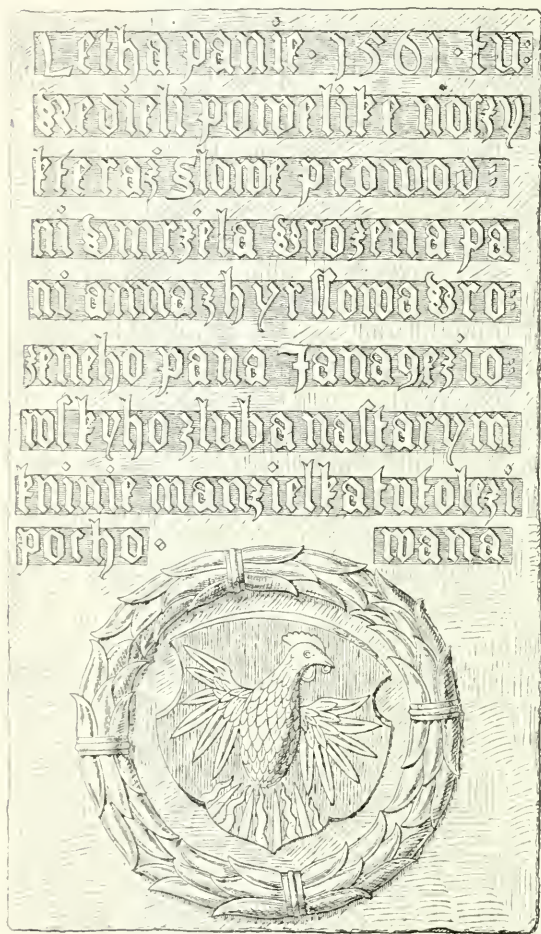 Letha panie · 1501 · tu:
Nedieli powelike noczy
kteraz slowe prowod:
ni Vmrzela Vrozena pa
ni anna z hyrssowa Vro:
zeneho pana Jana gezio:
wskyho z luba na starym
kninie manzielka tuto lezi
pocho · wana